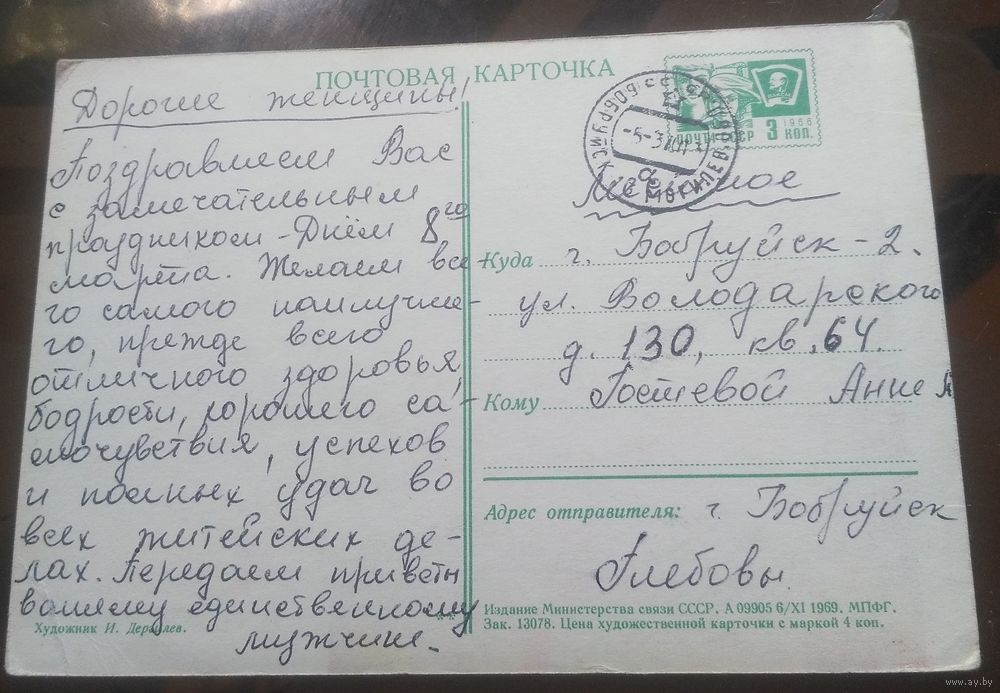 ПОЧТОВАЯ КАРТОЧКА
Дорогие женщины!
Поздравляем Вас
с замечательным
праздником - Днём 8го
марта. Желаем все
го самого наилучше-
го, прежде всего
отличного здоровья,
бодрости, хорошего са-
мочувствия, успехов
и полных удач во
всех житейских де-
лах. Передаем приветы
вашему единственному
мужчине.
Художник И. Дергилев.
ВЛКСМ
1966
ПОЧТА СССР 3 КОП.
БОБРУЙСК
Местное
Куда г. Бобруйск - 2.
ул. Володарского
д. 130, кв. 64.
Кому Гостевой Анне А
Адрес отправителя: г. Бобруйск
Глебовы.
Издание Министерства связи СССР. А 09905 6/XI 1969. МПФГ.
Зак. 13078. Цена художественной карточки с маркой 4 коп.
www.ay.by